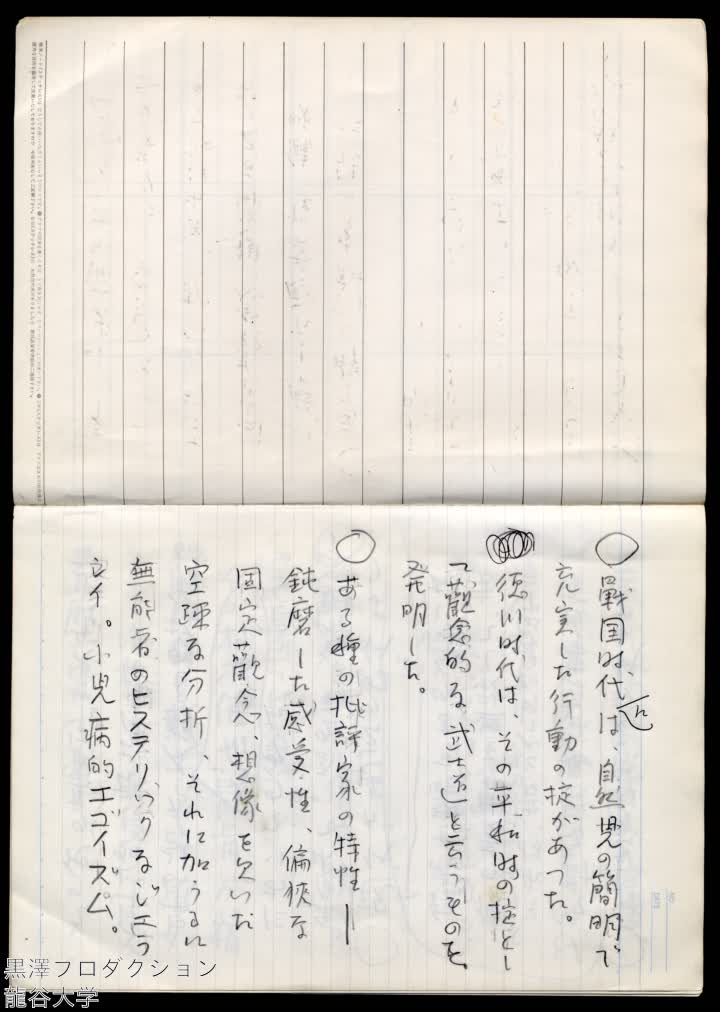 ○戰国时代は、自然児の簡明で
近
充実した行動の掟があつた。
徳川时代は、その平和时の掟とし
て觀念的な武士道と云うものを
発明した。
○ある種の批評家の特性ー
鈍磨した感受性、偏狭な
固定觀念、想像を欠いた
空疎な分析、それに加うるに
無能者のヒステリックなジェラ
シイ。小児病的エゴイズム。
黒澤プロダクション
龍谷大学